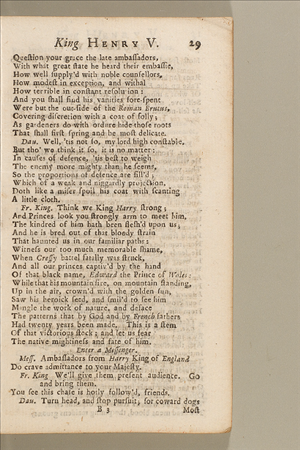 King HENRY V. 29
Queſtion your grace the late ambaſſadors,
With what great ſtate he heard their embaſſie,
How well ſupply'd with noble counſellors,
How modeſt in exception, and withal
How terrible in conſtant reſolution:
And you ſhall find his vanities fore-ſpent
Were but the out-ſide of the Roman Brutus,
Covering diſcretion with a coat of folly;
As gardeners do with ordure hide thoſe roots
That ſhall firſt ſpring and be moſt delicate.
Dau. Well, 'tis not ſo, my lord high conſtable,
But tho' we think it ſo, it is no matter:
In cauſes of defence, 'tis beſt to weigh
The enemy more mighty than he ſeems,
So the proportions of defence are fill'd;
Which of a weak and niggardly projection,
Doth like a miſer ſpoil his coat with ſcanting
A little cloth.
Fr. King. Think we King Harry ſtrong;
And Princes look you ſtrongly arm to meet him,
The kindred of him hath been fleſh'd upon us;
And he is bred out of that bloody ſtrain
That haunted us in our familiar paths:
Witneſs our too much memorable ſhame,
When Creſſy battel fatally was ſtruck,
And all our princes captiv'd by the hand
Of that black name, Edward the Prince of Wales:
While that his mountain fire, on mountain ſtanding,
Up in the air, crown'd with the golden ſun,
Saw his heroick ſeed, and ſmil'd to ſee him
Mangle the work of nature, and deface
The patterns that by God and by French fathers
Had twenty years been made. This is a ſtem
Of that victorious ſtock; and let us fear
The native mightineſs and fate of him.
Enter a Meſſenger.
Meſſ. Ambaſſadors from Harry King of England
Do crave admittance to your Majeſty.
Fr. King. We'll give them preſent audience. Go
and bring them.
You ſee this chaſe is hotly follow'd, friends.
Dau. Turn head, and ſtop purſuit; for coward dogs
B 3 Moſt